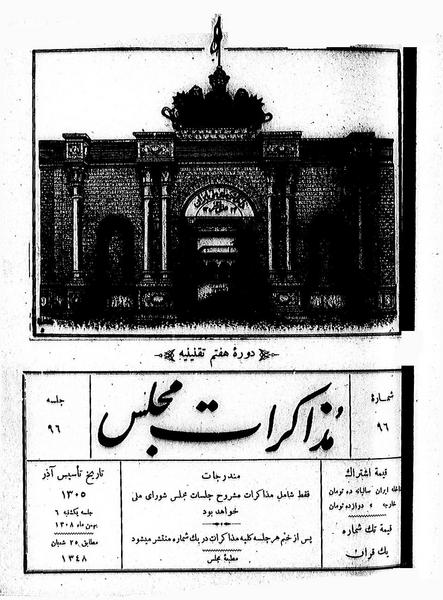 دورهٔ هفتم تقنینیه
شمارهٔ
۹۶
مذاکرات مجلس
جلسه
۹۶
قیمة اشتراك
داخله ایران سالیانه ده تومان
خارجه » دوازده تومان
قیمة تك شماره
يك قران
مندرجات
فقط شامل مذاکرات مشروح جلسات مجلس شورای ملی
خواهد بود
پس از ختم هر جلسه کلیه مذاکرات در يك شماره منتشر میشود
مطبعهٔ مجلس
تاریخ تأسیس آذر
۱۳۰۵
جلسه یکشنبه ۶
بهمن ماه ۱۳۰۸
مطابق ۲۵ شعبان
۱۳۴۸